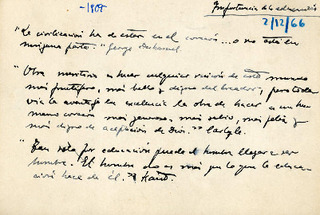 -1908
Importancia de la educación
2/12/66
"La civilización ha de estar en el corazón... o no está en
ninguna parte." George Duhamel.
"Obra nuestra es hacer cualquier rincón de este mundo
más fructífero, más bello y digno del Creador; pero toda
vía la aventaja en excelencia la obra de hacer a un hu
mano corazón más generoso, más sabio, más feliz y
más digno de aceptación de Dios." Carlyle.
"Tan solo por educación puede el hombre llegar a ser
hombre. El hombre no es más que lo que la educa-
ción hace de él." Kant.